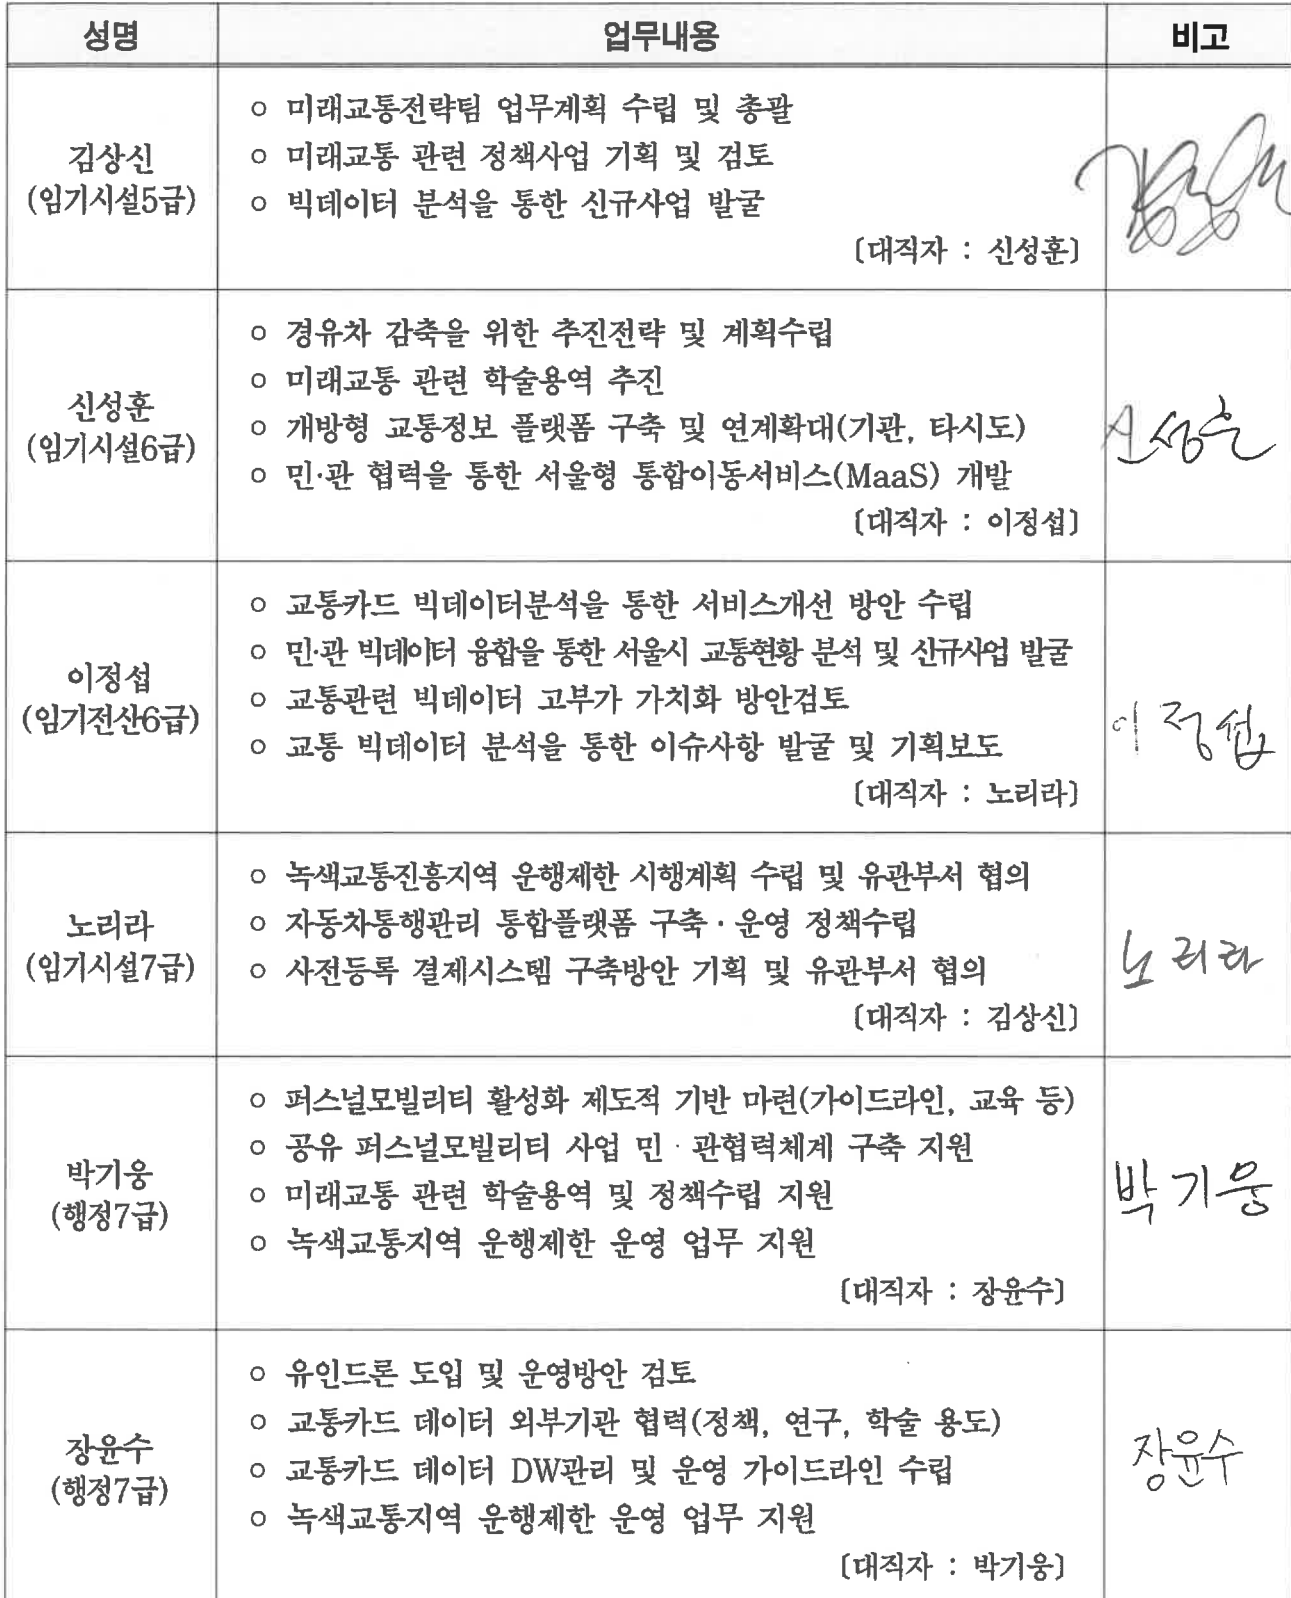 성명 업무내용 비고
ㅇ 미래교통전략팀 업무계획 수립 및 총괄
ㅇ 미래교통 관련 정책사업 기획 및 검토
ㅇ 빅데이터 분석을 통한 신규사업 발굴
〔대직자 : 신성훈〕
김상신
(임기시설5급)
ㅇ 경유차 감축을 위한 추진전략 및 계획수립
ㅇ 미래교통 관련 학술용역 추진
ㅇ 개방형 교통정보 플랫폼 구축 및 연계확대(기관, 타시도)
ㅇ 민·관 협력을 통한 서울형 통합이동서비스(MaaS) 개발
〔대직자 : 이정섭〕
신성훈
(임기시설6급)
신성훈
ㅇ 교통카드 빅데이터분석을 통한 서비스개선 방안 수립
ㅇ 민·관 빅데이터 융합을 통한 서울시 교통현황 분석 및 신규사업 발굴
ㅇ 교통관련 빅데이터 고부가 가치화 방안검토
ㅇ 교통 빅데이터 분석을 통한 이슈사항 발굴 및 기획보도
〔대직자 : 노리라〕
이정섭
(임기전산6급)
이정섭
ㅇ 녹색교통진흥지역 운행제한 시행계획 수립 및 유관부서 협의
ㅇ 자동차통행관리 통합플랫폼 구축·운영 정책수립
ㅇ 사전등록 결제시스템 구축방안 기획 및 유관부서 협의
〔대직자 : 김상신〕
노리라
(임기시설7급)
노리라
ㅇ 퍼스널모빌리티 활성화 제도적 기반 마련(가이드라인, 교육 등)
ㅇ 공유 퍼스널모빌리티 사업 민·관협력체계 구축 지원
ㅇ 미래교통 관련 학술용역 및 정책수립 지원
ㅇ 녹색교통지역 운행제한 운영 업무 지원
〔대직자 : 장윤수〕
박기웅
(행정7급)
박기웅
ㅇ 유인드론 도입 및 운영방안 검토
ㅇ 교통카드 데이터 외부기관 협력(정책, 연구, 학술 용도)
ㅇ 교통카드 데이터 DW관리 및 운영 가이드라인 수립
ㅇ 녹색교통지역 운행제한 운영 업무 지원
〔대직자 : 박기웅〕
장윤수
(행정7급)
장윤수